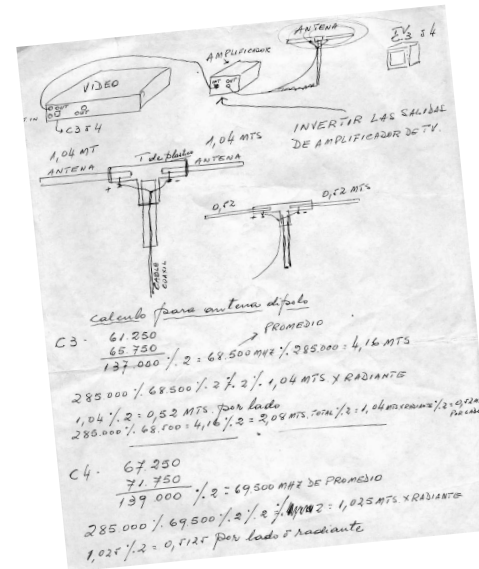 ANTENA
TV 3 ó 4
AMPLIFICADOR
VIDEO
INT OUT
OUT OUT
IN
C3 ó 4
INVERTIR LAS SALIDAS
DE AMPLIFICADOR DE TV.
1,04 MT
ANTENA
T de plastico
1,04 MTS
ANTENA
+ -
0,52
0,52 MTS
+ -
CABLE
COAXIL
calculo para antena dipolo
PROMEDIO
C3. 61.250
65.750
137.000 /. 2 = 68.500 MHZ /. 285.000 = 4,16 MTS
285.000 /. 68.500 /. 2 /. 2 /. 1,04 MTS X RADIANTE
1,04 /. 2 = 0,52 MTS. por lado
285.000 /. 68.500 = 4,16 /. 2 = 2,08 MTS. TOTAL /. 2 = 1,04 MTS X RADIANTE /. 2 = 0,52 MTS
POR LADO
C4. 67.250
71.750
139 000 /. 2 = 69,500 MHZ DE PROMEDIO
285.000 /. 69500 /. 2 /. 2 = 1,025 MTS X RADIANTE
1,025 /. 2 = 0,5125 por lado ó radiante